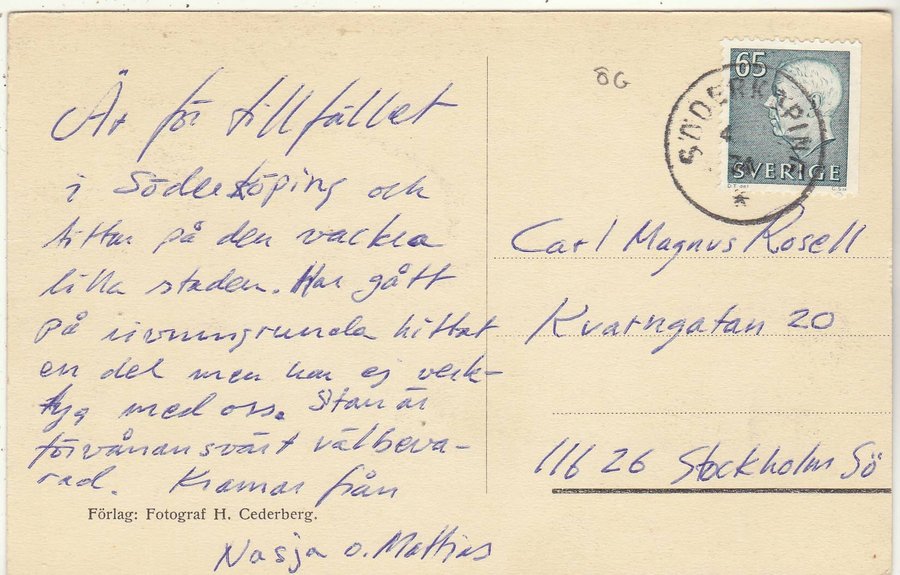 Är för tillfället
i Söderköping och
tittar på den vackra
lilla staden. Har gått
på rivningsrunda hittat
en del men har ej verk-
tyg med oss. Stan är
förvånansvärt välbeva-
rad. Kramar från
Nasja o. Mattias
Förlag: Fotograf H. Cederberg.
ÖG
65
SVERIGE
SÖDERKÖPING
4
Carl Magnus Rosell
Kvarngatan 20
116 26 Stockholm Sö